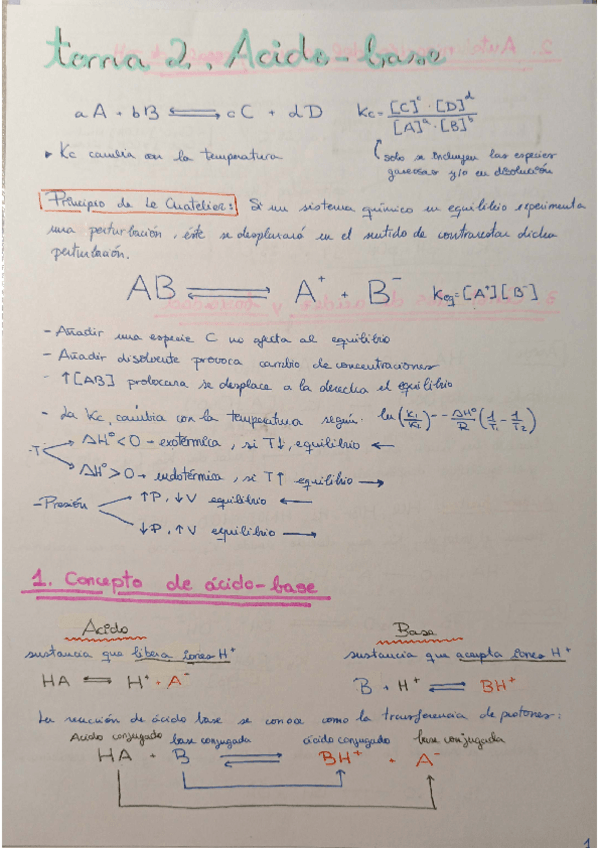 tema 2. Acido-base
aA + bB ⇌ cC + dD    Kc = [C]^c · [D]^d / [A]^a · [B]^b
▸ Kc cambia con la temperatura
solo se incluyen las especies
gaseosas y/o en disolución
Principio de Le Chatelier: Si un sistema químico en equilibrio experimenta
una perturbación, éste se desplazará en el sentido de contrarrestar dicha
perturbación.
AB ⇌ A⁺ + B⁻    Keq = [A⁺][B⁻]
- Añadir una especie C no afecta al equilibrio
- Añadir disolvente provoca cambio de concentraciones
- ↑[AB] provocara se desplace a la derecha el equilibrio
- La Kc, cambia con la temperatura según: ln(K1/K2) = -ΔH°/R (1/T1 - 1/T2)
-T
ΔH°<0 - exotérmica, si T↓, equilibrio ←
ΔH°>0 - endotérmica, si T↑ equilibrio →
- Presión
↑P, ↓V equilibrio ←
↓P, ↑V equilibrio →
1. Concepto de ácido-base
Acido    Base
sustancia que libera iones H⁺    sustancia que acepta iones H⁺
HA ⇌ H⁺ + A⁻    B + H⁺ ⇌ BH⁺
La reacción de ácido base se conoce como la transferencia de protones:
Acido conjugado    base conjugada    ácido conjugado    base conjugada
HA + B ⇌ BH⁺ + A⁻
1